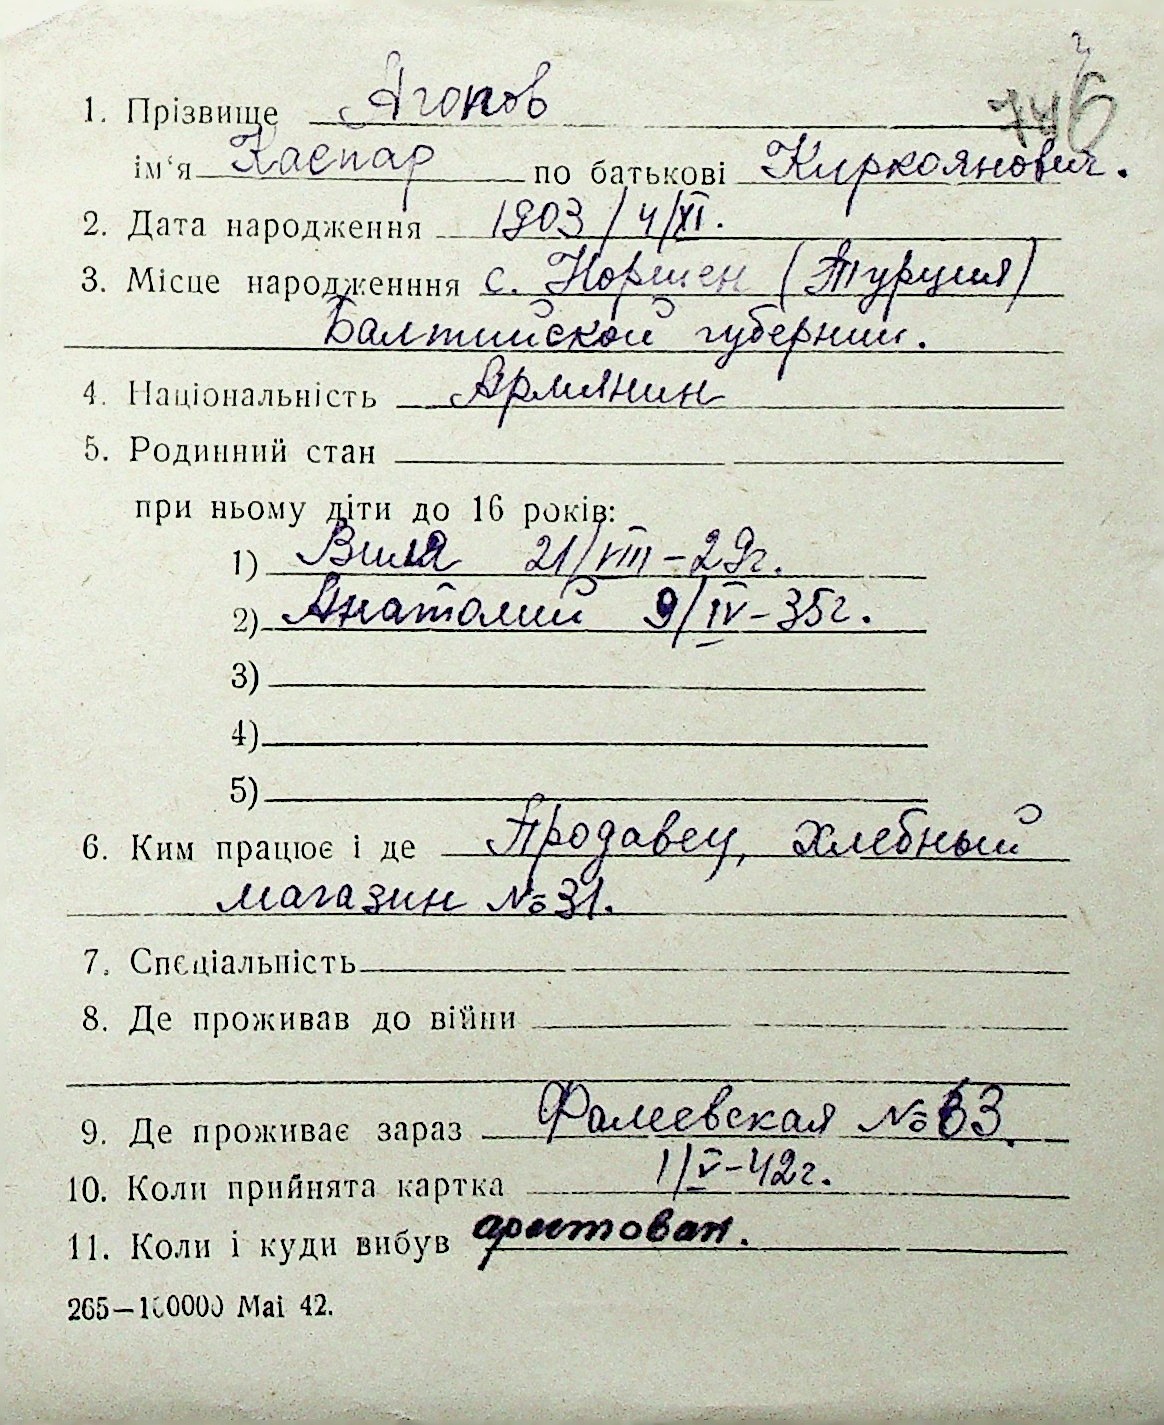 746
1. Прізвище Агопов
ім'я Каспар по батькові Киркоянович.
2. Дата народження 1903/4/XI.
3. Місце народженння с. Норшен (Турция)
Балтийской губернии.
4. Національність Армянин
5. Родинний стан
при ньому діти до 16 років:
1) Виля 21/VIII-29г.
2) Анатолий 9/IV-35г.
3)
4)
5)
6. Ким працює і де Продавец, хлебный
магазин № 31.
7. Спеціальність
8. Де проживав до війни
9. Де проживає зараз Фалеевская № 63.
10. Коли прийнята картка 1/V-42г.
11. Коли і куди вибув арестован.
265—100000 Маі 42.